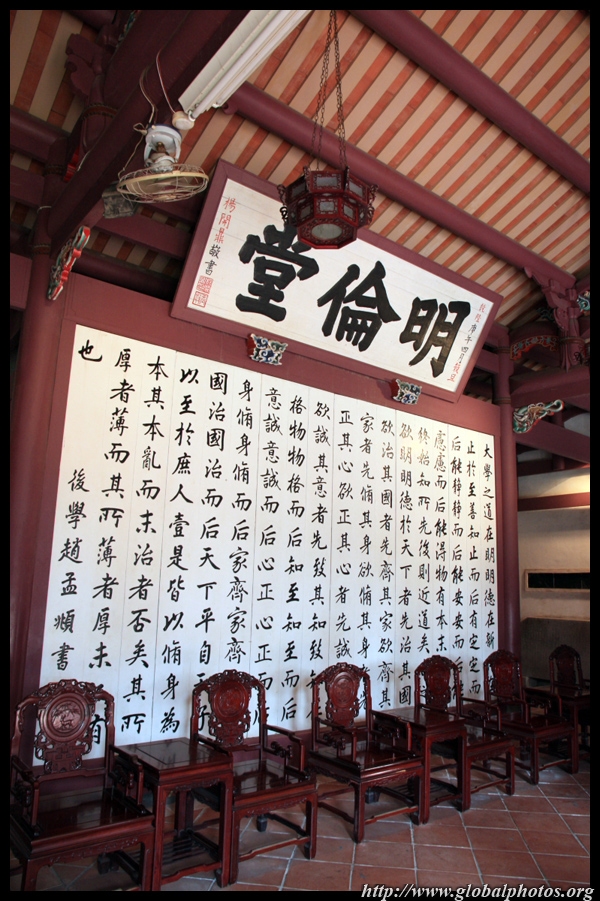 明倫堂
庚午四月穀旦
楊開鼎敬書
大學之道在明明德在新
止於至善知止而后有定定
后能靜靜而后能安安而后
慮慮而后能得物有本末
終始知所先後則近道矣
欲明明德於天下者先治其國
欲治其國者先齊其家欲齊其
家者先脩其身欲脩其身
正其心欲正其心者先誠
欲誠其意者先致其知
格物物格而后知至知至而后
意誠意誠而后心正心正而后
身脩身脩而后家齊家齊
國治國治而后天下平自子
以至於庶人壹是皆以脩身為
本其本亂而末治者否矣其所
厚者薄而其所薄者厚未有
也
後學趙孟頫書
http://www.globalphotos.org